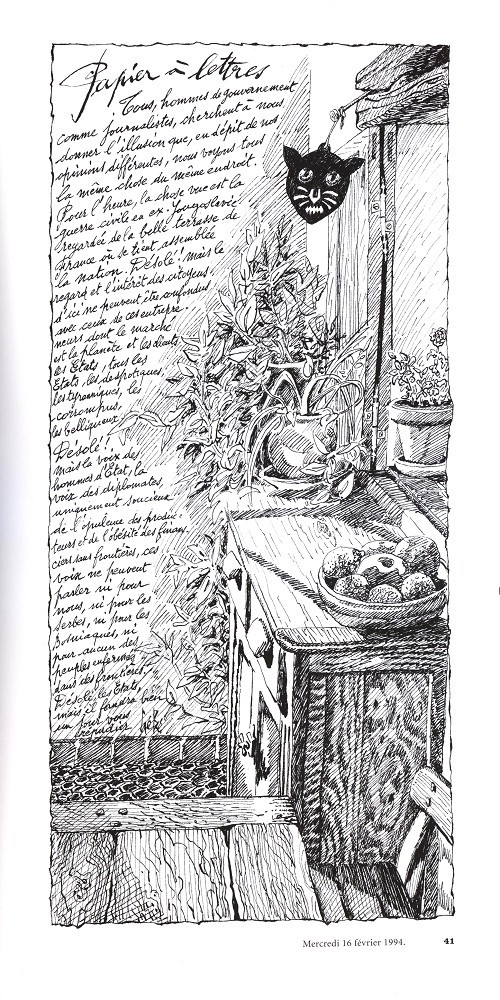 Papier à lettres
Tous, hommes de gouvernement
comme journalistes, cherchent à nous
donner l'illusion que, en dépit de nos
opinions différentes, nous voyons tous
la même chose du même endroit.
Pour l'heure, la chose vue est la
guerre civile en ex-Yougoslavie
regardée de la belle terrasse de
France où se tient assemblée
la nation. Désolé ! mais le
regard et l'intérêt des citoyens
d'ici ne peuvent être confondus
avec ceux de ces entrepre-
neurs dont le marché
est la planète et les clients
les États, tous les
États, les despotiques,
les tyranniques, les
corrompus,
les belliqueux.
Désolé !
mais la voix des
hommes d'État, la
voix des diplomates,
uniquement soucieux
de l'opulence des produc-
teurs et de l'obésité des finan-
ciers sans frontières, ces
voix ne peuvent
parler ni pour
nous, ni pour les
Serbes, ni pour les
Bosniaques, ni
pour aucun des
peuples enfermés
dans des frontières.
Désolé, les États,
mais il faudra bien
un jour vous
répudier.
Mercredi 16 février 1994.
41